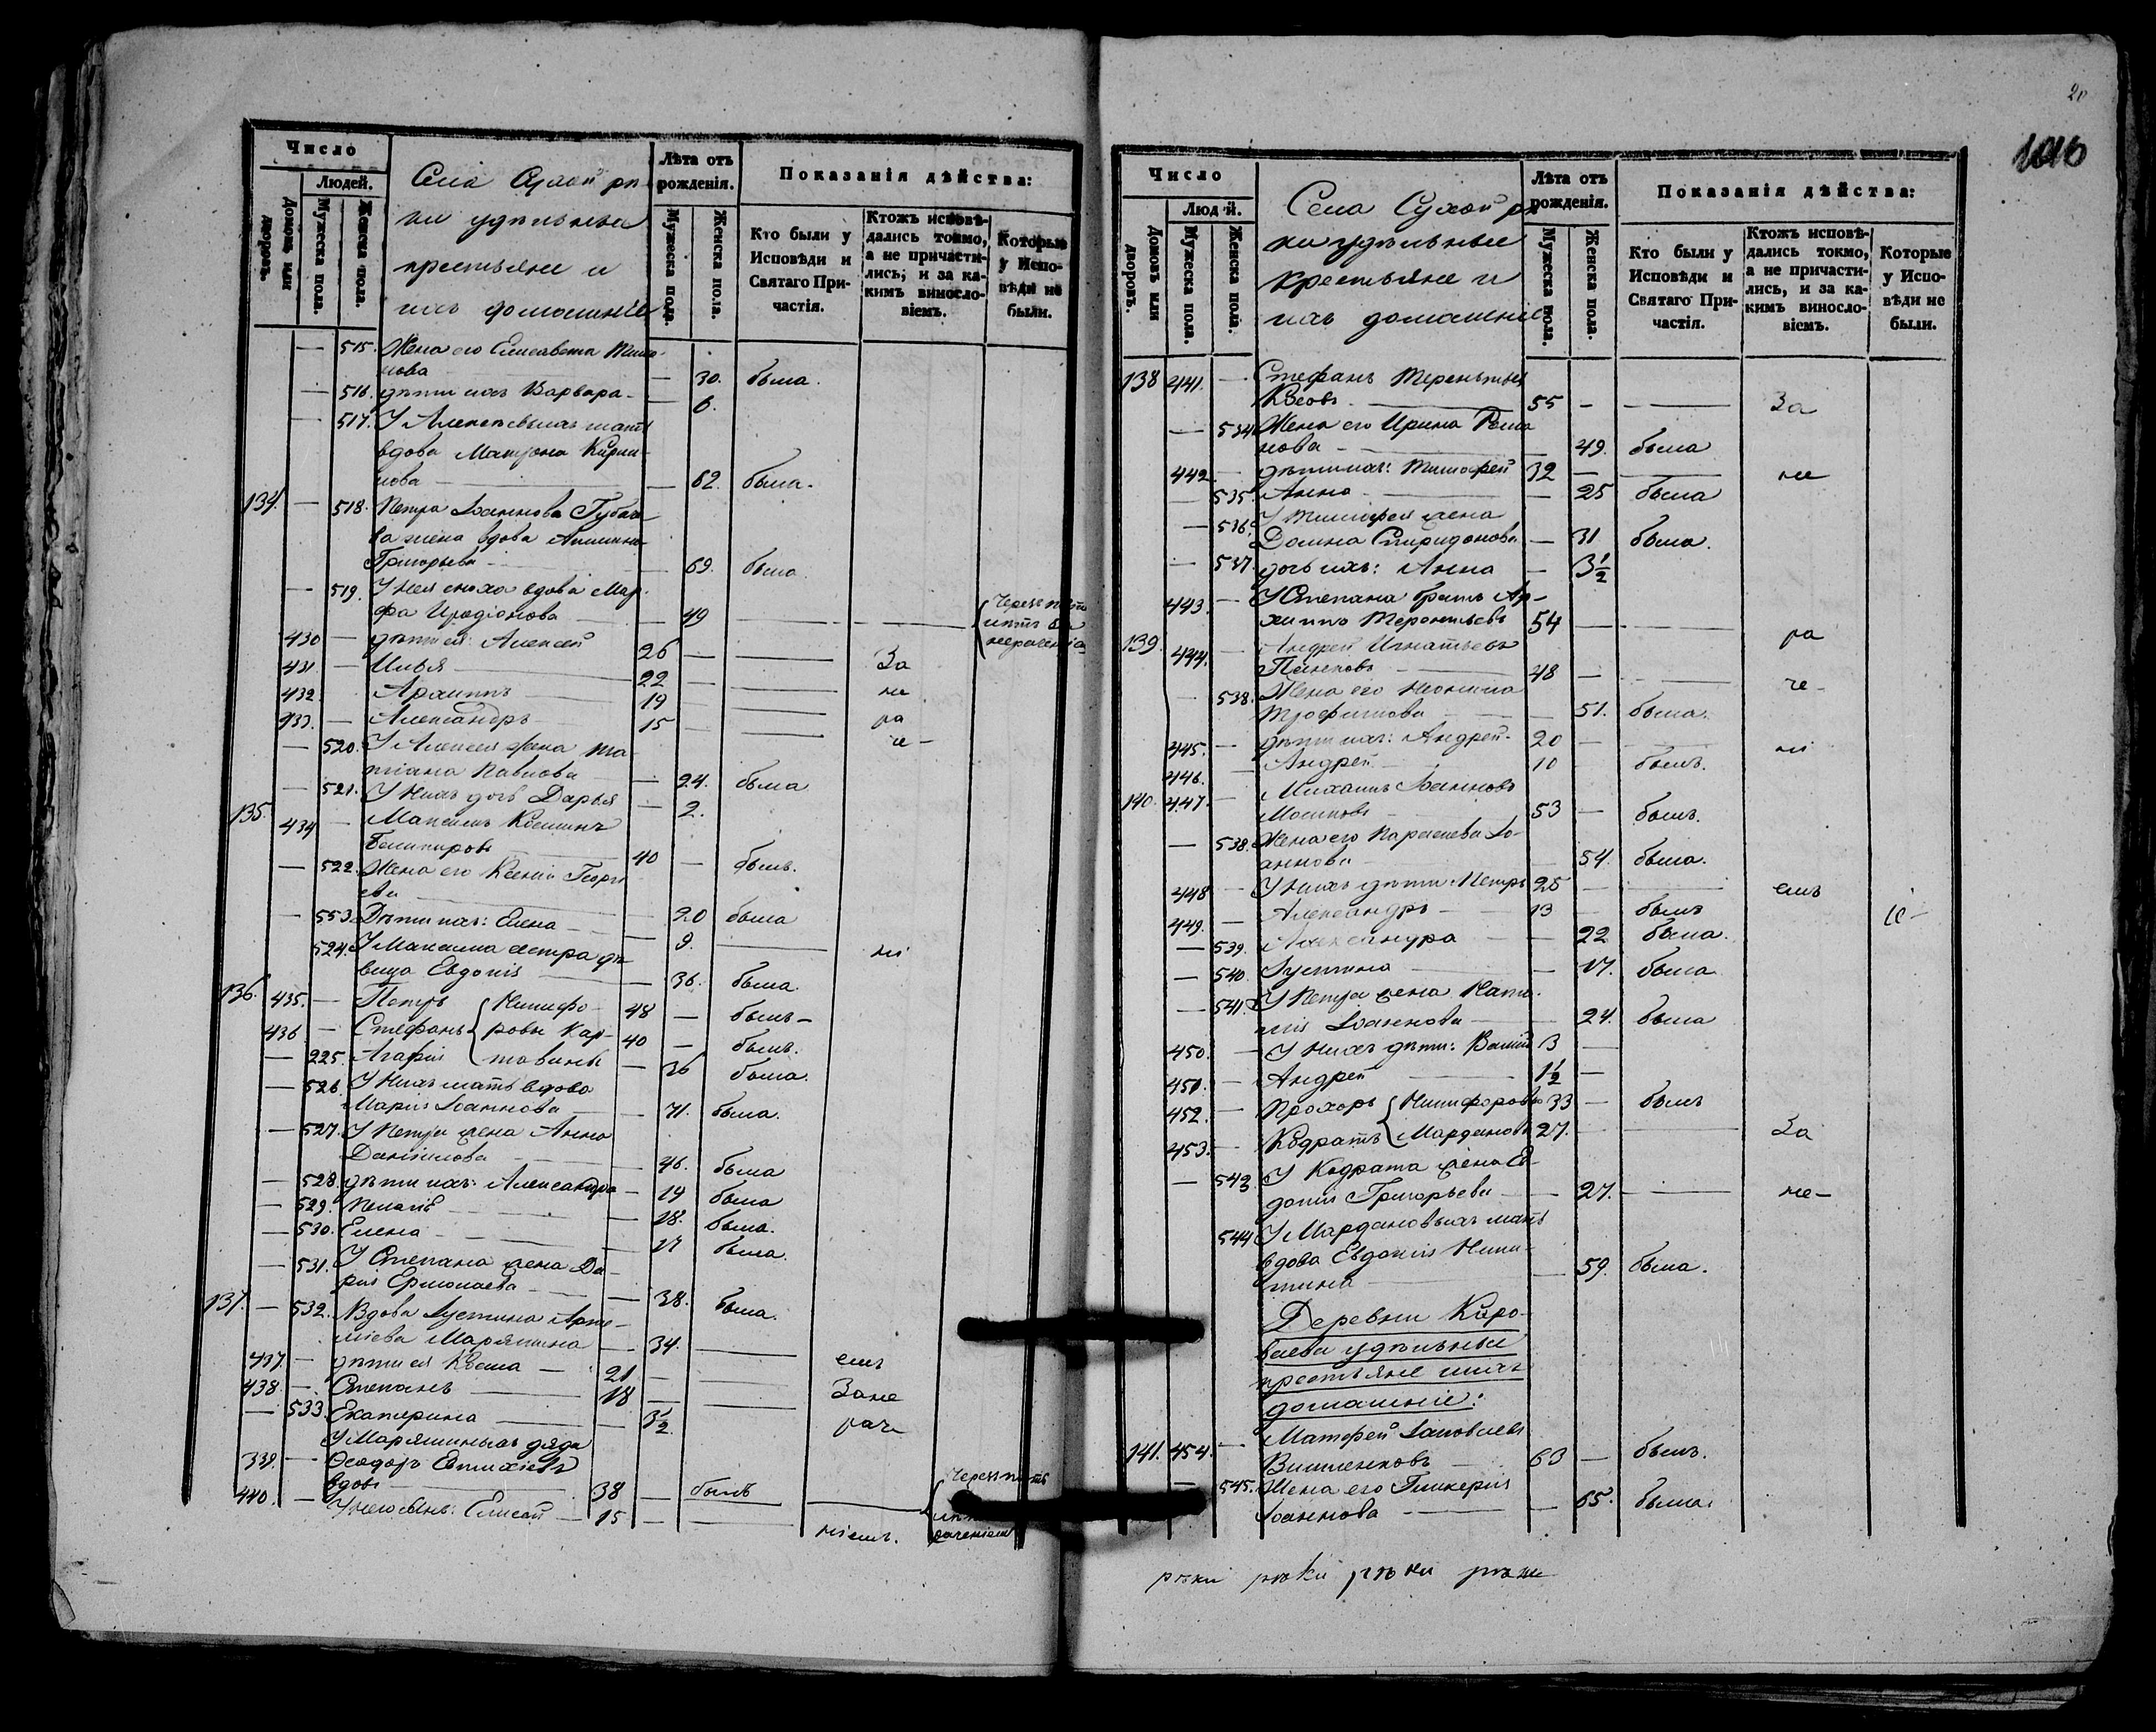 Число
Людей.
Домовъ или дворовъ.
Мужеска пола.
Женска пола.
Села Сухой рѣ-
ки удѣльные
крестьяне и
ихъ домашніе
Лѣта отъ рожденія.
Мужеска пола.
Женска пола.
Показанія дѣйства:
Кто были у Исповѣди и Святаго Причастія.
Ктожъ исповѣдались токмо, а не причастились, и за какимъ винословіемъ.
Которые у Исповѣди не были.
— 515. Жена его Елисавета
нова — 30. была.
— 516. дѣти ихъ Варвара — 6.
— 517. У Алексѣевыхъ мать
вдова Матрона Кирил-
лова — 62. была.
134. — 518. Петра Іоаннова
ва жена вдова Акилина
Григорьева — 69. была
— 519. У нея сноха вдова Мар-
фа Иродіонова — 49 — Черезъ пять
лѣтъ за
нераченіе
430 — дѣти ея Алексей 26 —
431 — Илья 22 — За
432 Архиппъ 19 не
433. — Александръ 15 — ра
че-
— 520. У Алексея жена Та
тіана Павлова — 24. была
— 521. У нихъ дочь Дарья — 2.
135. 434 — Максимъ Косминъ
Башкировъ 40 — былъ.
— 522. Жена его Ксенія Георгі
ева — 20 была
— 553. Дѣти ихъ: Елена — 9. — ні
524. У Максима сестра дѣ-
вица Евдокія — 36. была.
136. 435. — Петръ { Никифо- 48 — былъ-
436 — Стефанъ ровы Кар- 40 — былъ.
— 225. Агафія тавины — 36 была.
— 526. У нихъ мать вдова
Марія Іоаннова — 71. была.
— 527. У Петра жена Анна
Даніилова — 46. была
— 528. дѣти ихъ: Александра — 19 была
— 529. Пелагія — 18. была.
— 530. Елена — 17 была.
— 531. У Степана жена Да-
рія Ермолаева — 38. была.
137. — 532. Вдова Іустина Арте-
міева Марямина — 34. —
437. — дѣти ея Косма — 21 — емъ
438. — Степанъ 18 — Зане
— 533. Екатерина — 3½ рач
У Маряминыхъ дядя
339. — Ѳеодоръ Евтихіевъ
вдовъ 38 — былъ Черезъ пять
440. — У него сынъ: Елисей — 15 — ніемъ. раченіемъ
20
1016
Число
Людей.
Домовъ или дворовъ.
Мужеска пола.
Женска пола.
Села Сухой рѣ
ки удѣльные
крестьяне и
ихъ домашніе
Лѣта отъ рожденія.
Мужеска пола.
Женска пола.
Показанія дѣйства:
Кто были у Исповѣди и Святаго Причастія.
Ктожъ исповѣдались токмо, а не причастились, и за какимъ винословіемъ.
Которые у Исповѣди не были.
138 441. — Стефанъ Терентьевъ
55 — — За
— 534 Жена его Ирина Рома
нова — 49. была
442. — дѣти ихъ: Тимофей 32 — — не
— 535. Анна — 25 была
— 536. У Тимофея жена
Домна Спиридонова — 31 была.
— 537. дочь ихъ: Анна — 3½
443. — У Степана братъ Ар-
хиппъ Терентьевъ 54 — — ра
139. 444. — Андрей Игнатьевъ
Панковъ 48 — — че-
538. Жена его Неонила
Трофимова — 51. была.
445. — дѣти ихъ: Андрей 20 — — ні
446. — Андрей 10 былъ.
140. 447. — Михаилъ Іоанновъ
53 — былъ.
— 538. Жена его Параскева Іо-
аннова — 54. была.
448 — У нихъ дѣти Петръ 25 — — емъ
449. — Александръ — 13 — былъ
— 539. Александра — 22 была.
— 540. Іустина — 17. была
— 541. У Петра жена Ната-
лія Іоаннова — 24. была
450. — У нихъ дѣти: 3 —
451. — Андрей 1½ —
452. — Прохоръ { Никифоровы 33 — былъ
453. — Кодратъ Мардановы 27. — — За
— 543. У Кодрата жена Ев-
докія Григорьева — 27. — не-
544 У Мардановыхъ мать
вдова Евдокія Ники-
тина — 59. была.
Деревни Каро-
ваева удѣльные
крестьяне и ихъ
домашніе:
141. 454. — Матфей Іаковлевъ
Вишенковъ 63 — былъ.
— 545. Жена его Гликерія
Іоаннова — 65. была.
рѣки рѣки рѣки рѣки